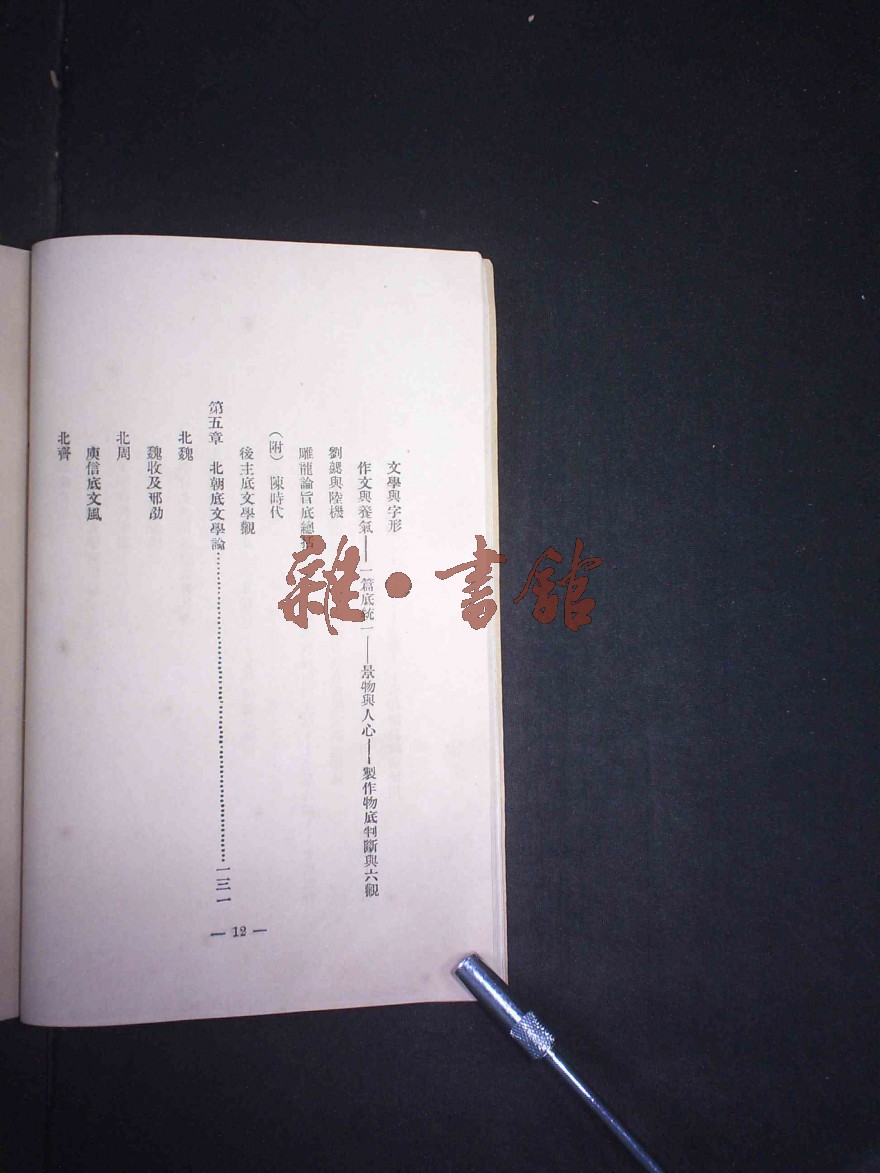 文學與字形
作文與養氣——一篇底統一——景物與人心——製作物底判斷與六觀
劉勰與陸機
雕龍論旨底總括
（附） 陳時代
後主底文學觀
第五章 北朝底文學論……………………………………一三一
北魏
魏收及邢劭
北周
庾信底文風
北齊
— 12 —
雜•書館